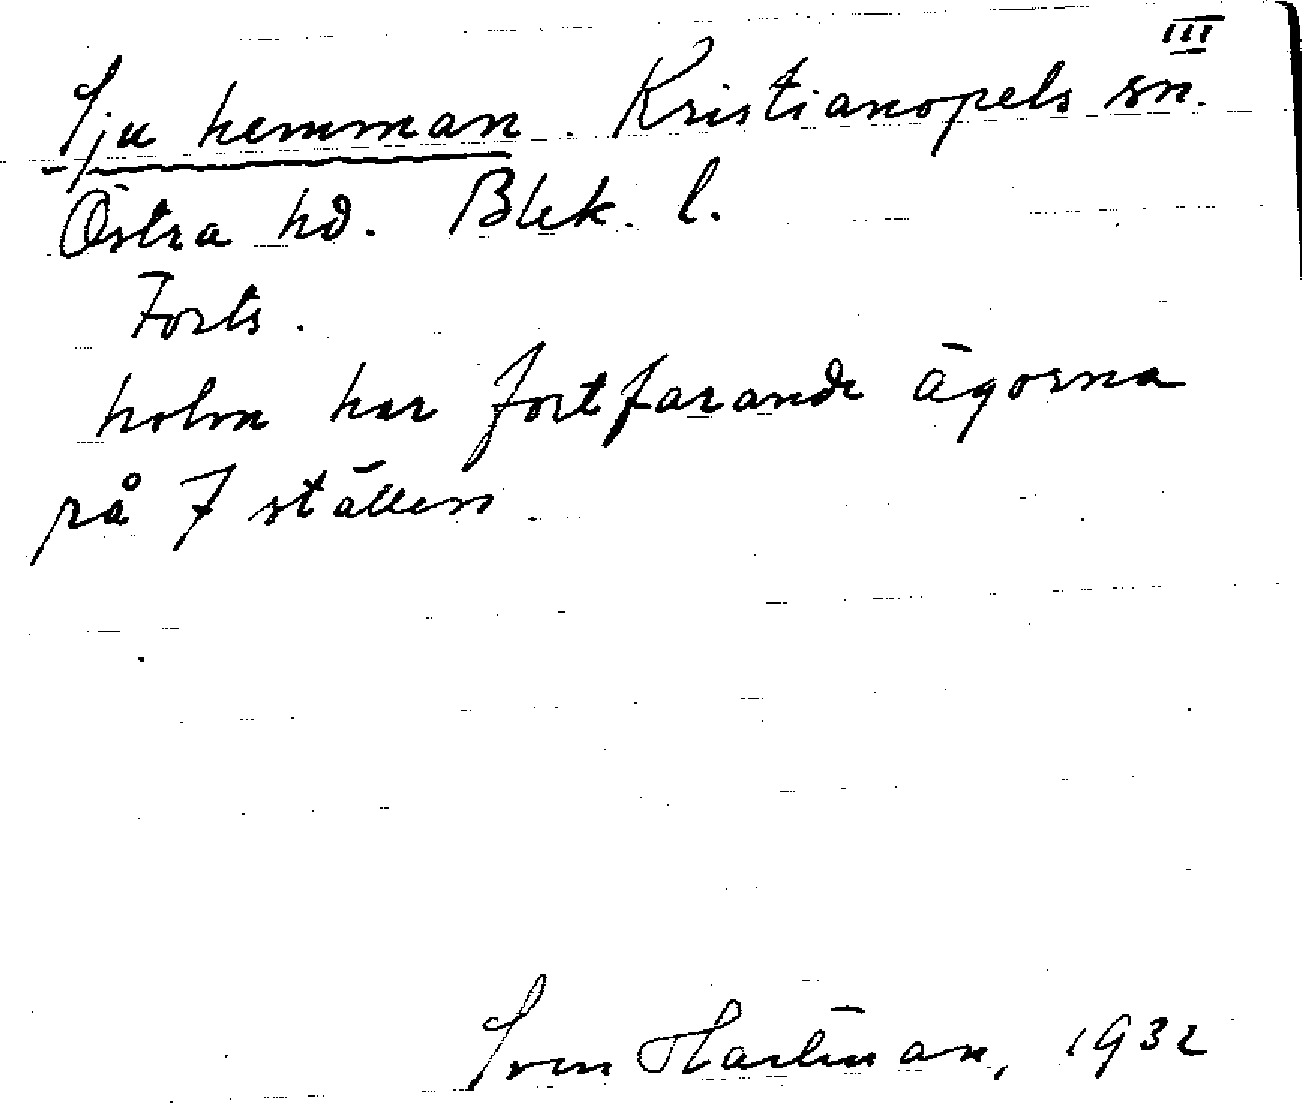 III
Sju hemman. Kristianopels sn.
Östra hd. Blek. l.
Forts.
holm har fortfarande ägorna
på 7 ställen
Sven Hartman, 1932